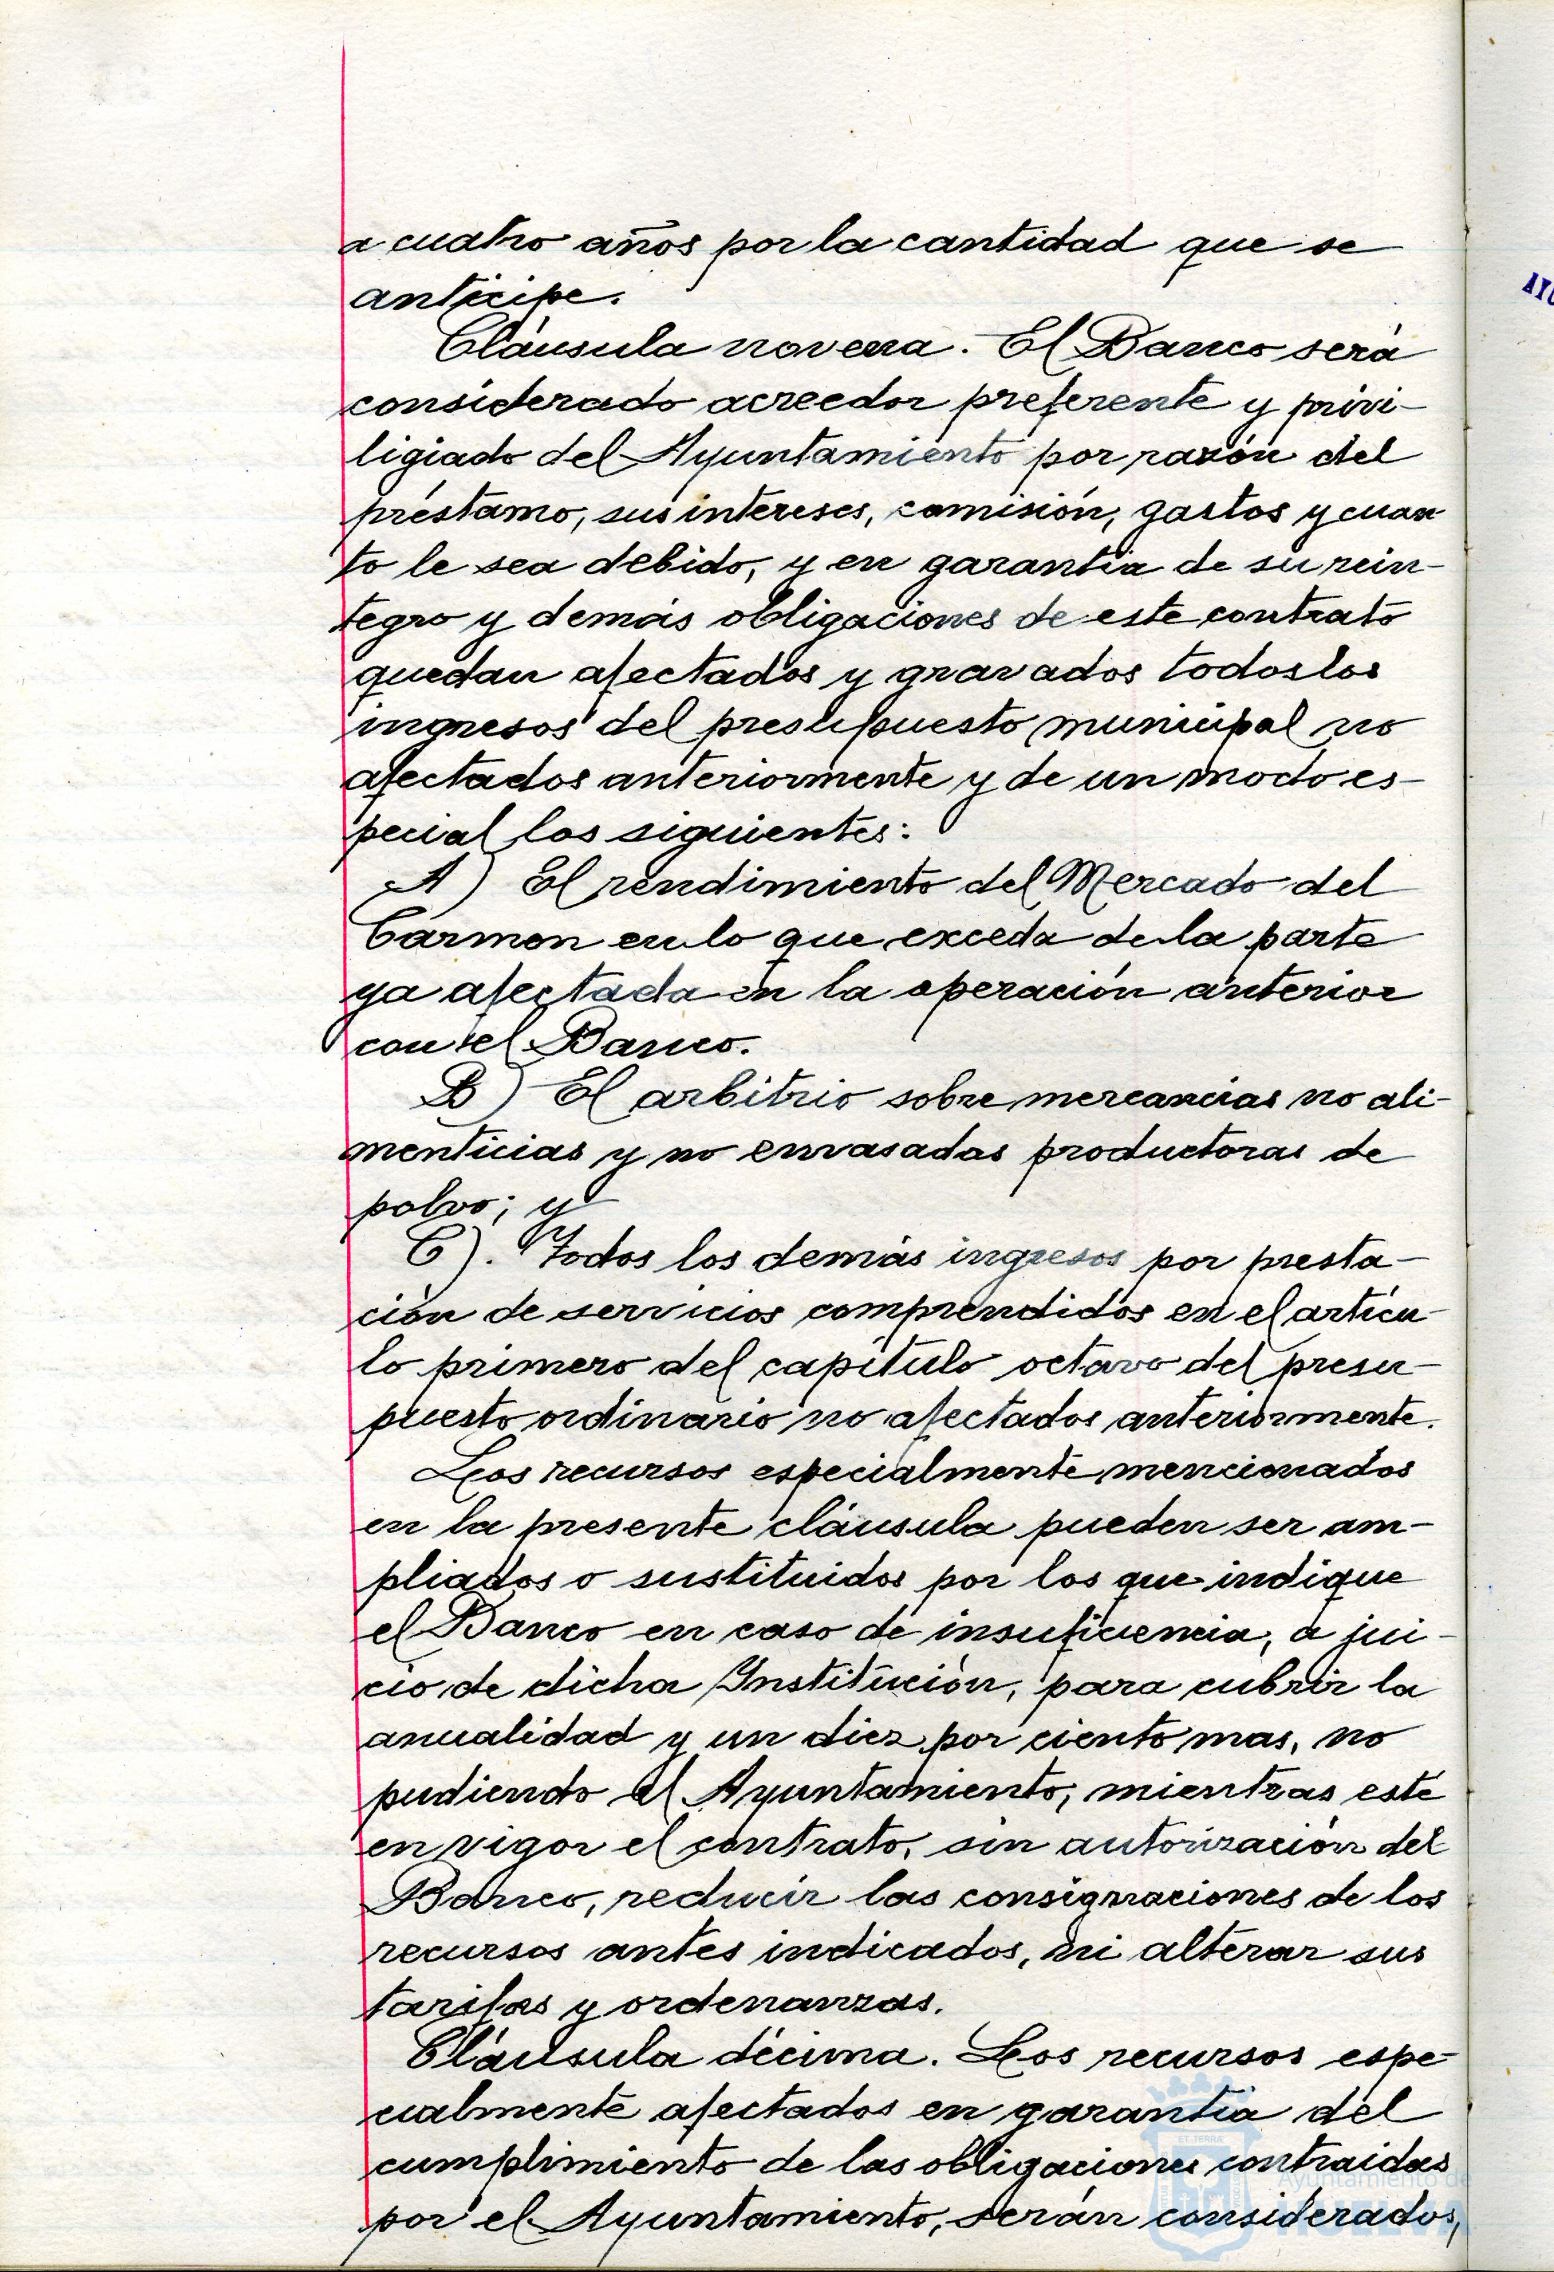 a cuatro años por la cantidad que se
anticipe.
Cláusula novena. El Banco será
considerado acreedor preferente y privi-
ligiado del Ayuntamiento por razón del
préstamo, sus intereses, comisión, gastos y cuan
to le sea debido, y en garantía de su rein-
tegro y demás obligaciones de este contrato
quedan afectados y gravados todos los
ingresos del presupuesto municipal no
afectados anteriormente y de un modo es-
pecial los siguientes:
A) El rendimiento del Mercado del
Carmen en lo que exceda de la parte
ya afectada en la operación anterior
con el Banco.
B) El arbitrio sobre mercancias no ali-
menticias y no envasadas productoras de
polvo; y
C). Todos los demás ingresos por presta-
ción de servicios comprendidos en el artícu-
lo primero del capítulo octavo del presu-
puesto ordinario no afectados anteriormente.
Los recursos especialmente mencionados
en la presente cláusula pueden ser am-
pliados o sustituidos por los que indique
el Banco en caso de insuficiencia, a jui-
cio de dicha Institución, para cubrir la
anualidad y un diez por ciento mas, no
pudiendo el Ayuntamiento, mientras esté
en vigor el contrato, sin autorización del
Banco, reducir las consignaciones de los
recursos antes indicados, ni alterar sus
tarifas y ordenanzas.
Cláusula décima. Los recursos espe-
cialmente afectados en garantía del
cumplimiento de las obligaciones contraidas
por el Ayuntamiento, serán considerados,
ET TERRÆ
Ayuntamiento de
HUELVA